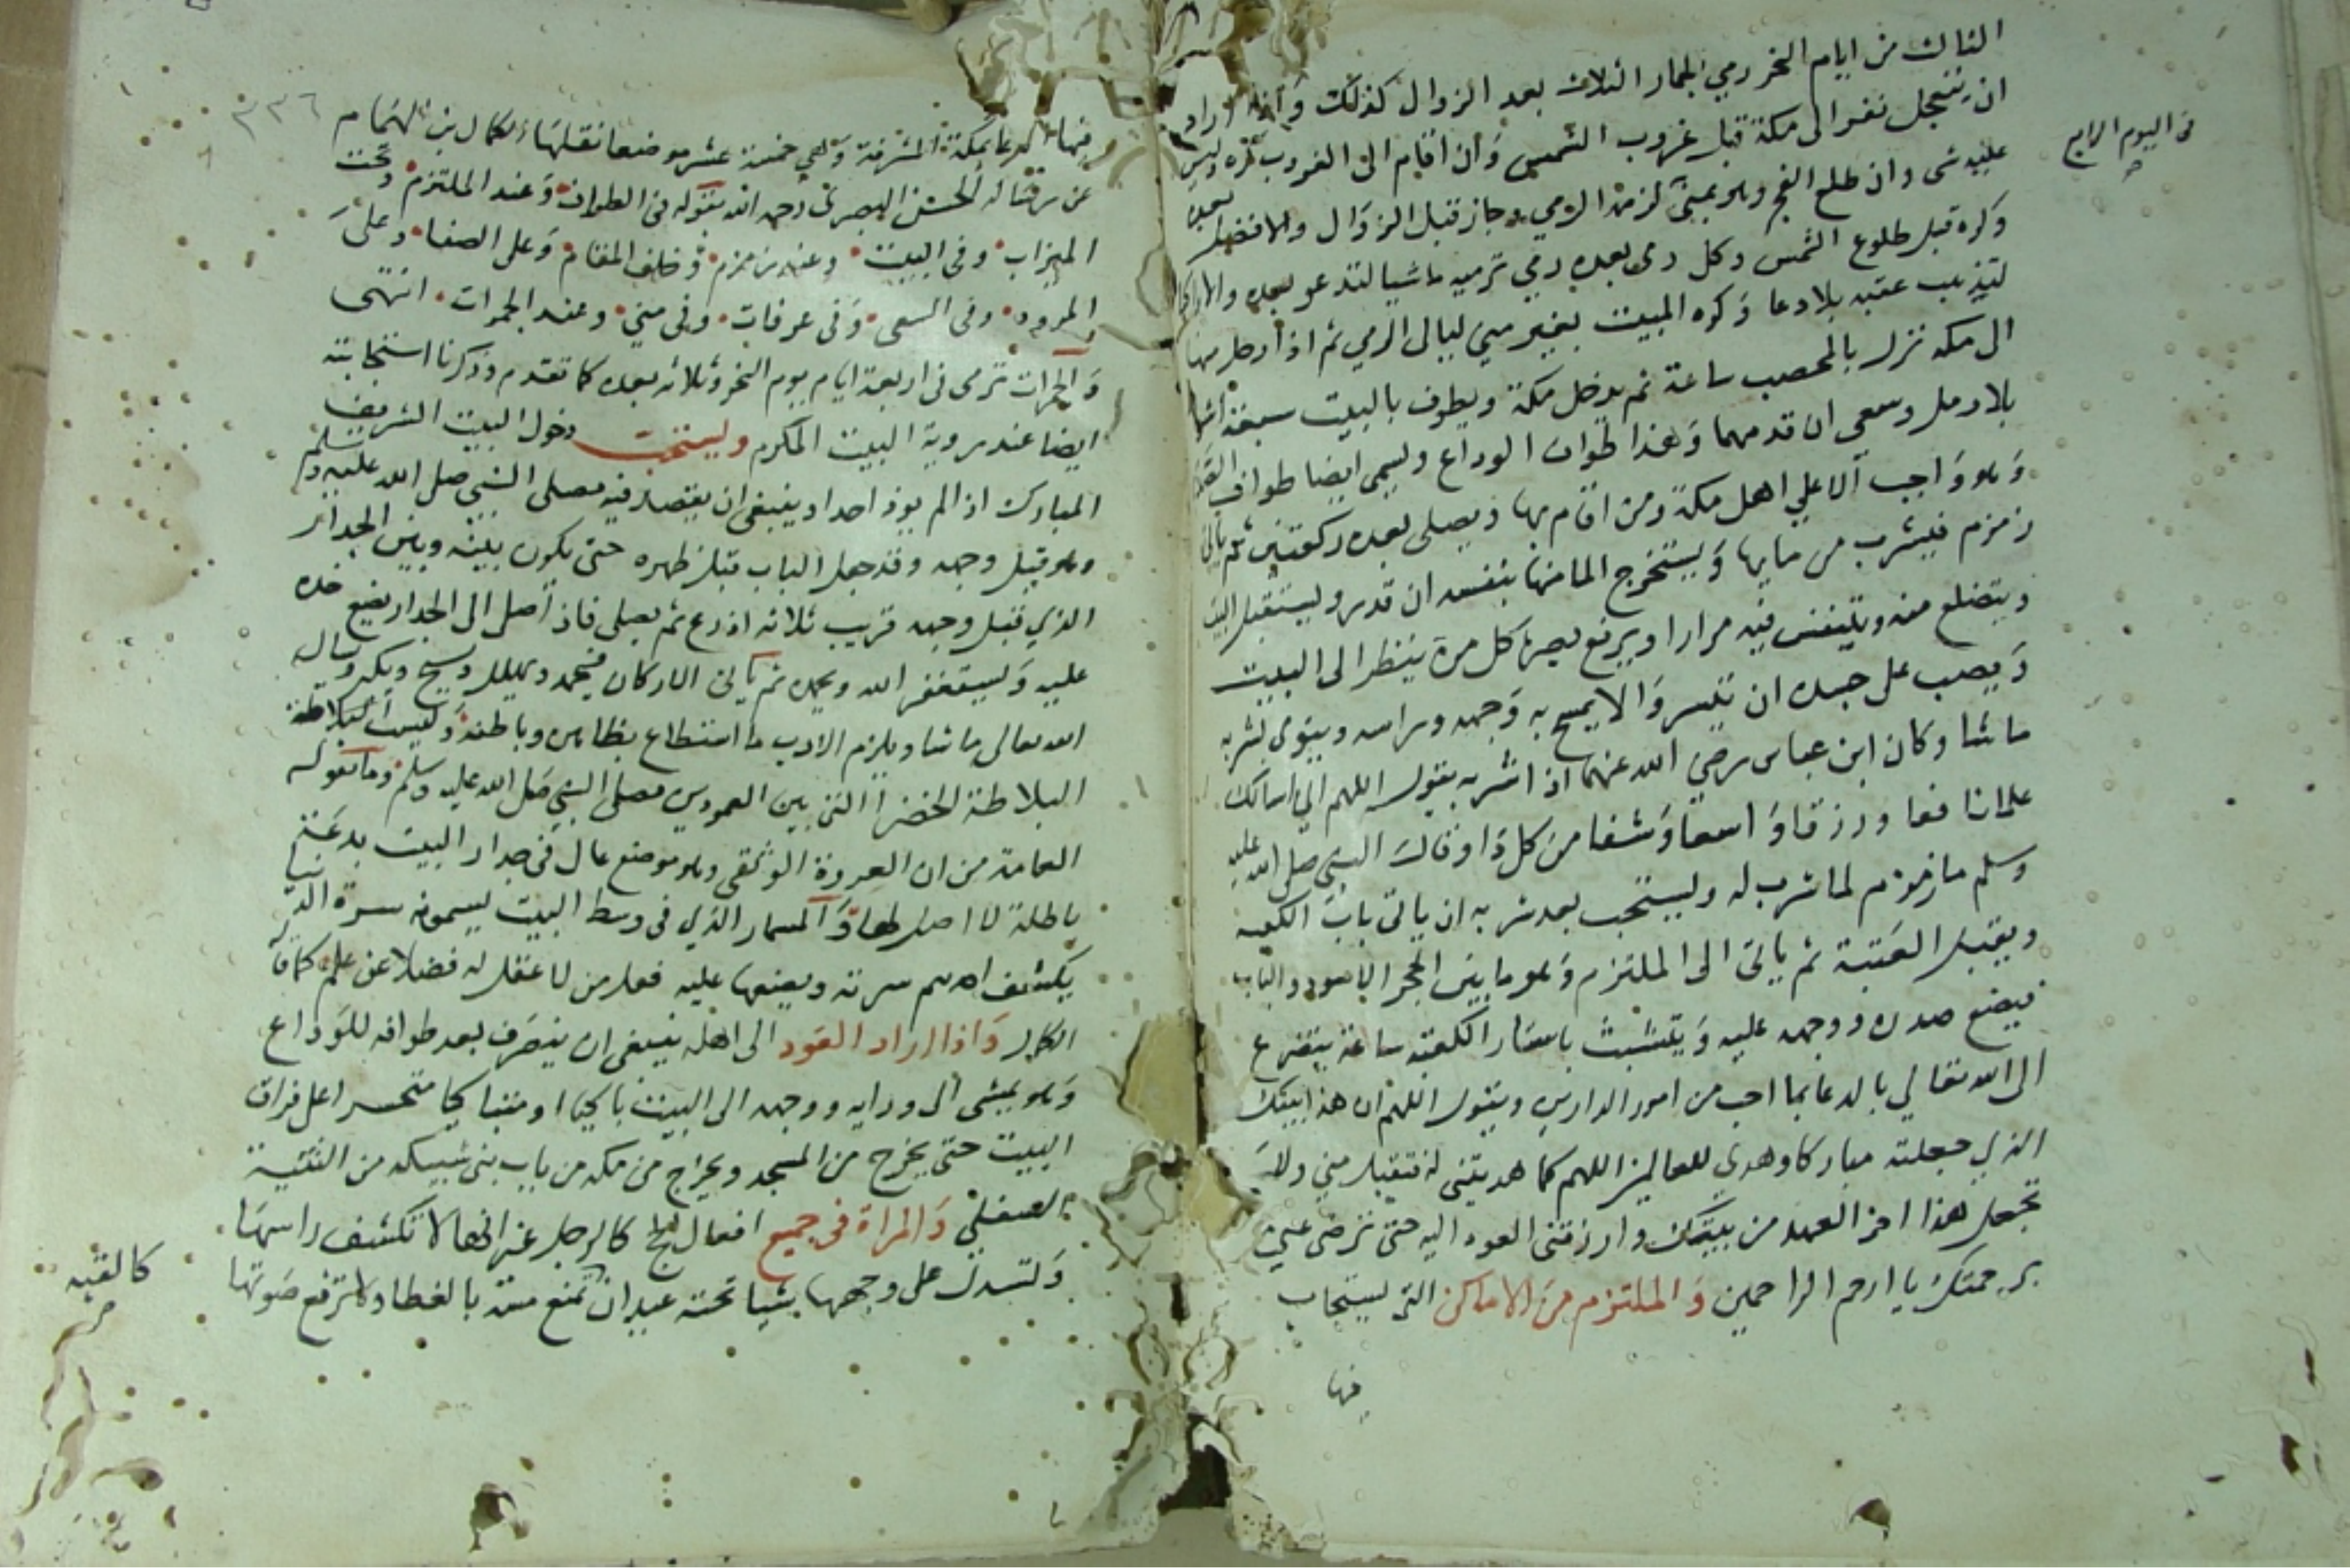 الثالث من ايام النحر رمي الجمار الثلاث بعد الزوال كذلك وَاذا اراد
ان يتعجل نفر الى مكة قبل غروب الشمس وَان اقام الى الغروب كره وليس
عليه شى وان طلع الفجر وهو بمنى لزمه الرمي وجاز قبل الزوَال والافضل بعده
فى اليوم الرابع
وكره قبل طلوع الشمس وكل رمى بعده رمي ترميه ماشيا لتدعو بعده والا راكبا
لتذهب عقبه بلا دعا وَكره المبيت بغير منى ليالى الرمي ثم اذا رحل منها
الى مكة نزل بالمحصب ساعة ثم يدخل مكة ويطوف بالبيت سبعة اشواط
بلا رمل وسعي ان قدمهما وَهذا طواف الوداع ويسمى ايضا طواف الصدر
وَهو وَاجب الا علي اهل مكة ومن اقام بها ويصلى بعده ركعتين ثم ياتي
زمزم فيشرب من مايها وَيستخرج الما منها بنفسه ان قدر ويستقبل البيت
ويتضلع منه ويتنفس فيه مرارا ويرفع بصره كل مرة ينظر الى البيت
وَيصب على جسده ان تيسر وَالا يمسح به وَجهه وراسه وينوي بشربه
ما شا وكان ابن عباس رضي الله عنهما اذا شربه يقول اللهم اني اسالك
علما نافعا ورزقا وَاسعا وَشفا من كل دَا وقال النبي صلى الله عليه
وسلم ما زمزم لما شرب له ويستحب بعد شربه ان ياتى باب الكعبه
ويقبل العَتبة ثم ياتى الى الملتزم وَهو ما بين الحجر الاسود والباب
فيضع صدره ووجهه عليه وَيتشبث باستار الكعبة ساعة يتضرع
الى الله تعالي بالدعا بما احب من امور الدارين ويقول اللهم ان هذا بيتك
الذي جعلته مباركا وهدى للعالمين اللهم كما هديتني له فتقبل مني ولا
تجعل هذا اخر العهد من بيتك وارزقنى العود اليه حتى ترضى عني
برحمتك يا ارحم الراحمين وَالملتزم من الاماكن التى يستجاب
فيها
٣٣٦
فيها الدعا بمكة المشرفة وَهي خمسة عشر موضعا نقلها الكمال بن الهمام
عن رسالة الحسن البصرى رحمه الله بقوله فى الطواف وَعند الملتزم وتحت
الميزاب وفى البيت وعند زمزم وَخلف المقام وَعلى الصفا وعلى
المروة وفى السعى وَفى عرفات وفى منى وعند الجمرات انتهى
وَالجمرات ترمى فى اربعة ايام يوم النحر وثلاثه بعده كما تقدم وذكرنا استجابته
ايضا عند روية البيت المكرم ويستحب دخول البيت الشريف
المبارك اذا لم يوذ احدا وينبغى ان يقصد فيه مصلى النبي صلى الله عليه وسلم
وهو قبل وجهه وقد جعل الباب قبل ظهره حتى يكون بينه وبين الجدار
الذي قبل وجهه قريب ثلاثه اذرع ثم يصلى فاذا صلى الى الجدار يضع خده
عليه وَيستغفر الله ويحمده ثم ياتى الاركان فيحمد ويهلل ويسبح ويكبر ويسال
الله تعالى ما شا ويلزم الادب ما استطاع بظاهره وباطنه وَليست البلاطة
البلاطة الخضرا التى بين العمودين مصلى النبي صلى الله عليه وسلم وما تقوله
العامة من ان العروة الوثقى وهو موضع عال فى جدار البيت بدعة
باطلة لا اصل لها وَالمسمار الذي فى وسط البيت يسمونه سرة الدنيا
يكشف احدهم سرته ويضعها عليه فعل من لا عقل له فضلا عن علم كما قاله
الكمال وَاذا اراد العَود الى اهله ينبغى ان ينصرف بعد طوافه للوَداع
وَهو يمشى الى ورايه ووجهه الى البيت باكيا او متباكيا متحسرا على فراق
البيت حتى يخرج من المسجد ويخرج من مكه من باب بنى شيبه من الثنية
السفلى وَالمراة فى جميع افعال الحج كالرجل غير انها لا تكشف راسها
وَتسدل على وجهها شيا تحته عيدان تمنع مسه بالغطا ولا ترفع صَوتها
كالقبه